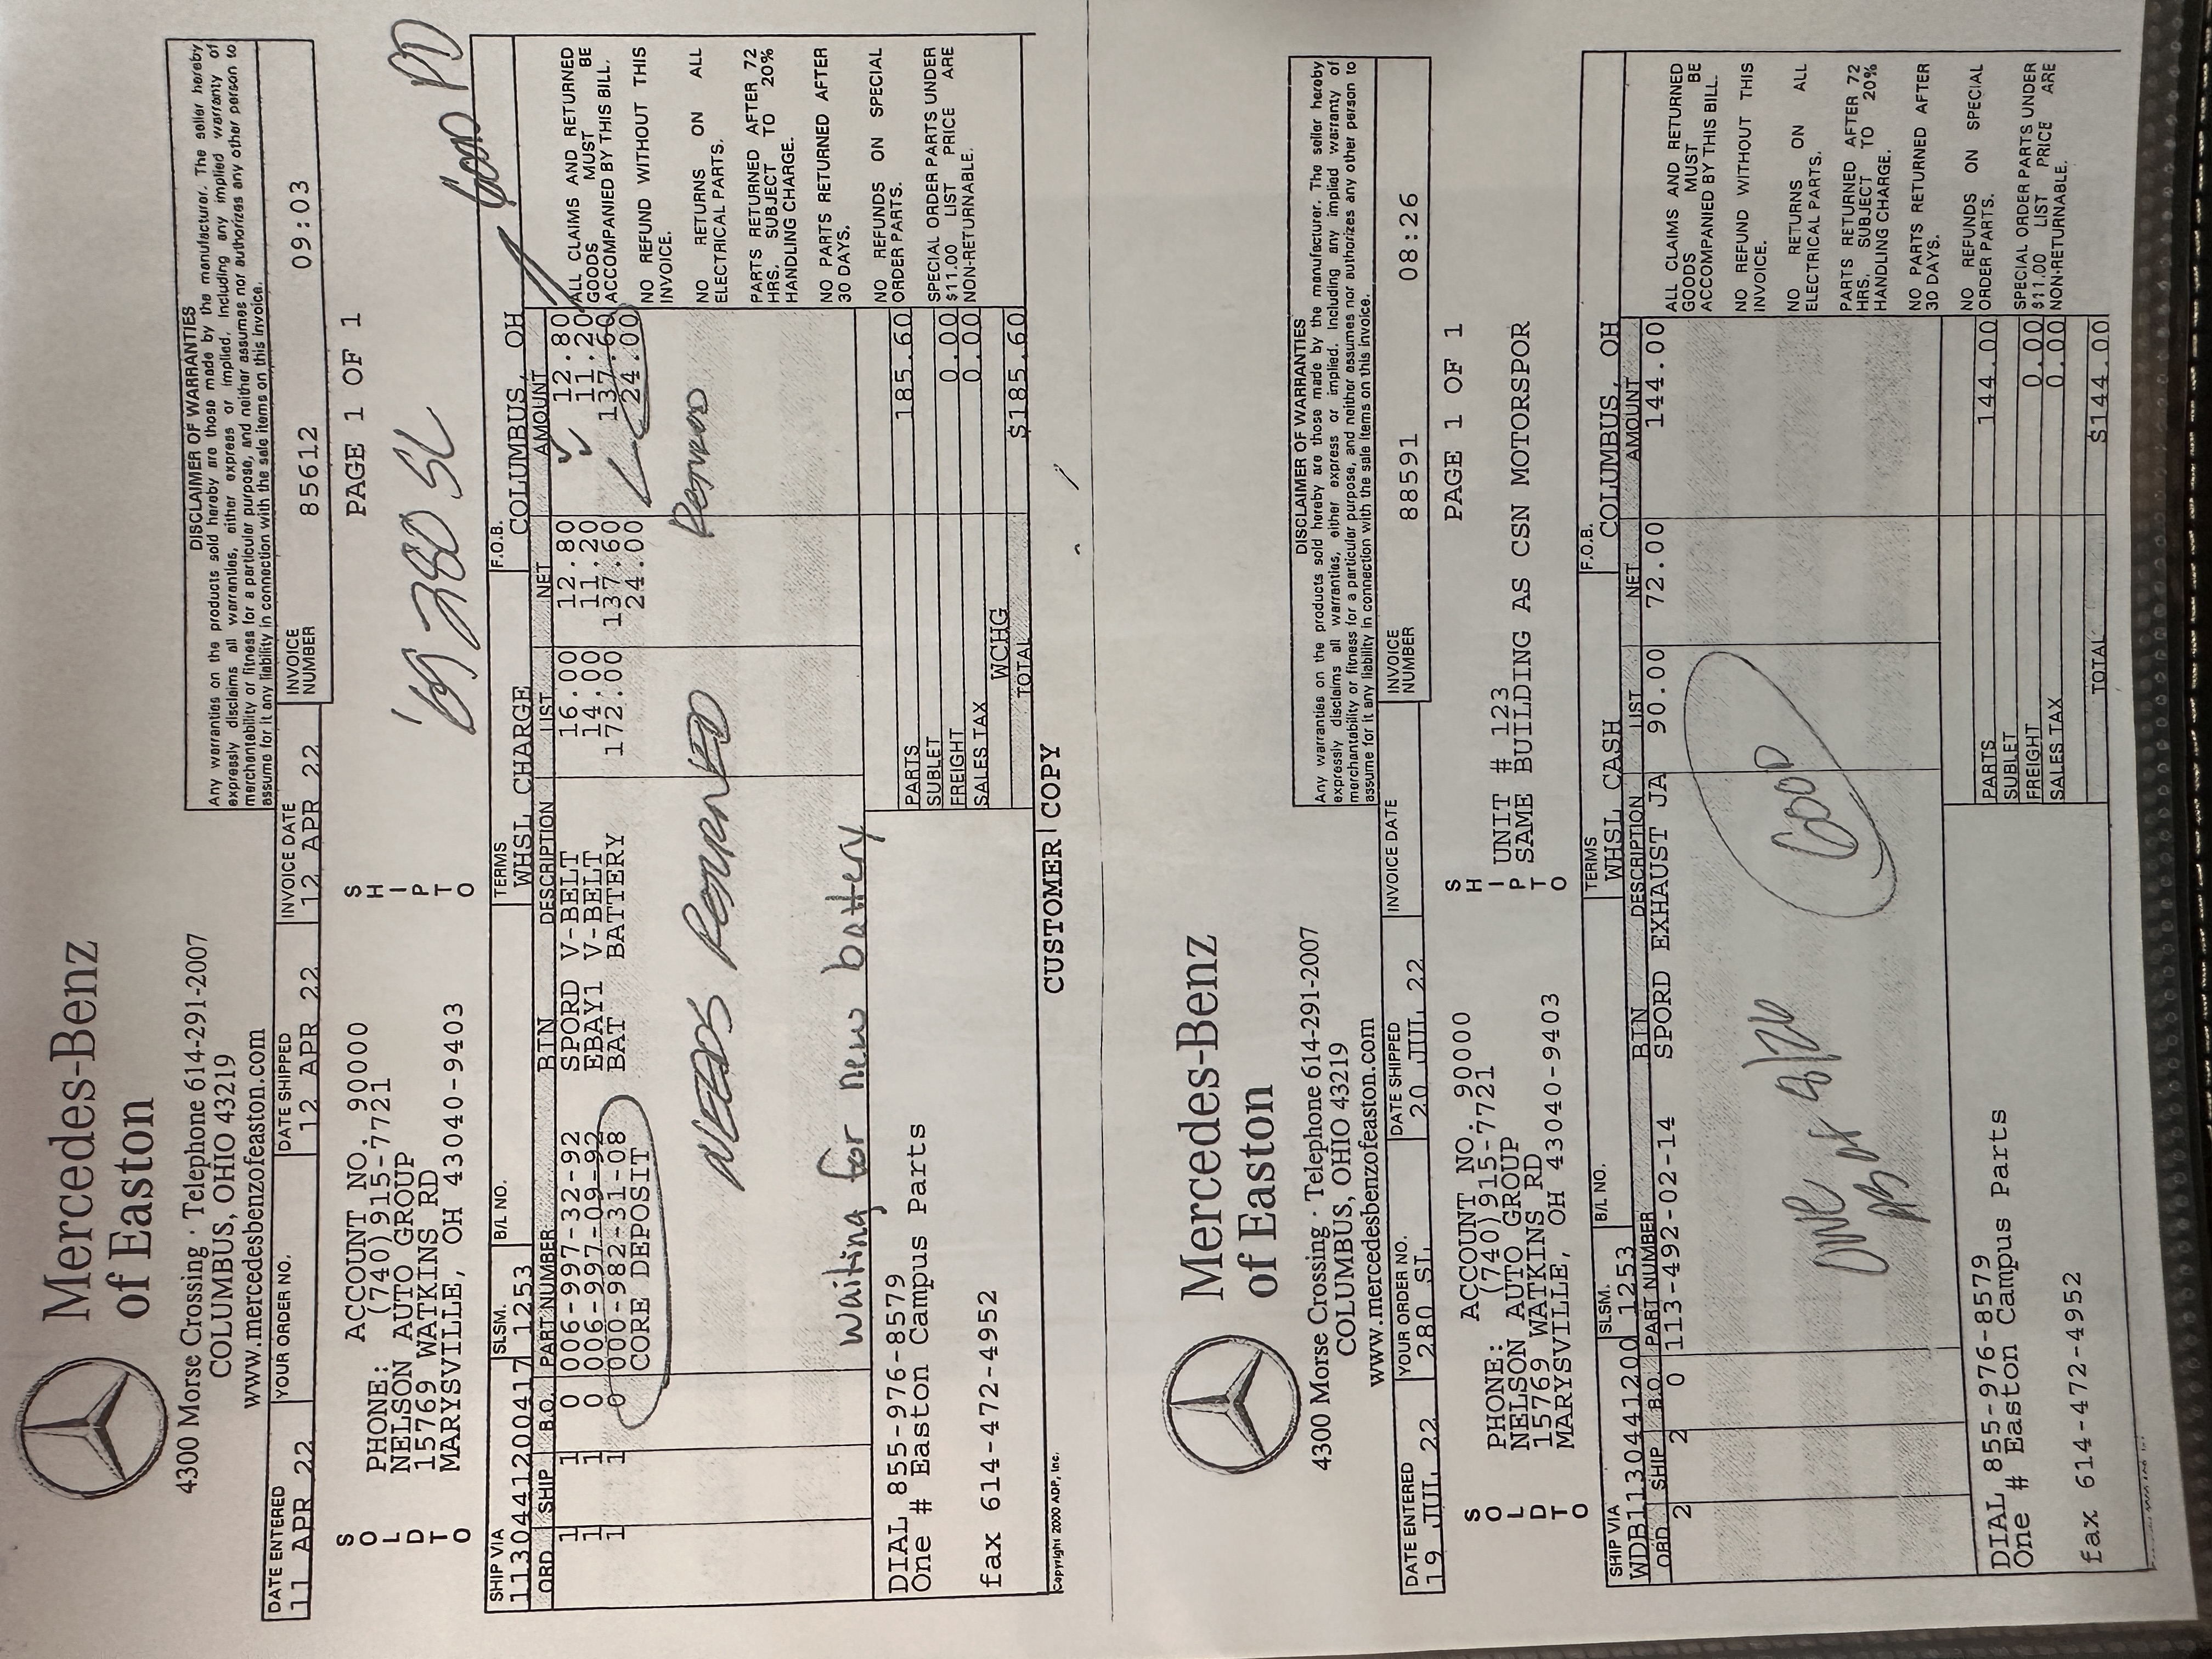 Mercedes-Benz
of Easton
4300 Morse Crossing · Telephone 614-291-2007
COLUMBUS, OHIO 43219
www.mercedesbenzofeaston.com
DISCLAIMER OF WARRANTIES
Any warranties on the products sold hereby are those made by the manufacturer. The seller hereby
expressly disclaims all warranties, either express or implied, including any implied warranty of
merchantability or fitness for a particular purpose, and neither assumes nor authorizes any other person to
assume for it any liability in connection with the sale items on this invoice.
DATE ENTERED YOUR ORDER NO. DATE SHIPPED INVOICE DATE INVOICE NUMBER
11 APR 22 12 APR 22 12 APR 22 85612 09:03
SOLD TO
ACCOUNT NO. 90000
PHONE: (740)915-7721
NELSON AUTO GROUP
15769 WATKINS RD
MARYSVILLE, OH 43040-9403
SHIP TO
PAGE 1 OF 1
280 SL
GOOD PD
SHIP VIA SLSM. B/L NO. TERMS F.O.B.
1130441200417 1253 WHSL CHARGE COLUMBUS, OH
ORD SHIP B.O. PART NUMBER BIN DESCRIPTION LIST NET AMOUNT
1 1 0 006-997-32-92 SPORD V-BELT 16.00 12.80 12.80
1 1 0 006-997-09-92 EBAY1 V-BELT 14.00 11.20 11.20
1 1 0 000-982-31-08 BAT BATTERY 172.00 137.60 137.60
CORE DEPOSIT 24.00 24.00
NEEDS RETURNED
RETURNED
waiting for new battery
ALL CLAIMS AND RETURNED
GOODS MUST BE
ACCOMPANIED BY THIS BILL.
NO REFUND WITHOUT THIS
INVOICE.
NO RETURNS ON ALL
ELECTRICAL PARTS.
PARTS RETURNED AFTER 72
HRS. SUBJECT TO 20%
HANDLING CHARGE.
NO PARTS RETURNED AFTER
30 DAYS.
NO REFUNDS ON SPECIAL
ORDER PARTS.
SPECIAL ORDER PARTS UNDER
$11.00 LIST PRICE ARE
NON-RETURNABLE.
DIAL 855-976-8579
One # Easton Campus Parts
fax 614-472-4952
PARTS 185.60
SUBLET
FREIGHT 0.00
SALES TAX 0.00
WCHG
TOTAL $185.60
Copyright 2000 ADP, Inc.
CUSTOMER COPY
Mercedes-Benz
of Easton
4300 Morse Crossing · Telephone 614-291-2007
COLUMBUS, OHIO 43219
www.mercedesbenzofeaston.com
DISCLAIMER OF WARRANTIES
Any warranties on the products sold hereby are those made by the manufacturer. The seller hereby
expressly disclaims all warranties, either express or implied, including any implied warranty of
merchantability or fitness for a particular purpose, and neither assumes nor authorizes any other person to
assume for it any liability in connection with the sale items on this invoice.
DATE ENTERED YOUR ORDER NO. DATE SHIPPED INVOICE DATE INVOICE NUMBER
19 JUL 22 280 SL 20 JUL 22 88591 08:26
SOLD TO
ACCOUNT NO. 90000
PHONE: (740)915-7721
NELSON AUTO GROUP
15769 WATKINS RD
MARYSVILLE, OH 43040-9403
SHIP TO
PAGE 1 OF 1
UNIT # 123
SAME BUILDING AS CSN MOTORSPOR
SHIP VIA SLSM. B/L NO. TERMS F.O.B.
WDB1130441200 1253 WHSL CASH COLUMBUS, OH
ORD SHIP B.O. PART NUMBER BIN DESCRIPTION LIST NET AMOUNT
2 2 0 113-492-02-14 SPORD EXHAUST JA 90.00 72.00 144.00
GOOD
ALL CLAIMS AND RETURNED
GOODS MUST BE
ACCOMPANIED BY THIS BILL.
NO REFUND WITHOUT THIS
INVOICE.
NO RETURNS ON ALL
ELECTRICAL PARTS.
PARTS RETURNED AFTER 72
HRS. SUBJECT TO 20%
HANDLING CHARGE.
NO PARTS RETURNED AFTER
30 DAYS.
NO REFUNDS ON SPECIAL
ORDER PARTS.
SPECIAL ORDER PARTS UNDER
$11.00 LIST PRICE ARE
NON-RETURNABLE.
DIAL 855-976-8579
One # Easton Campus Parts
fax 614-472-4952
PARTS 144.00
SUBLET
FREIGHT 0.00
SALES TAX 0.00
TOTAL $144.00